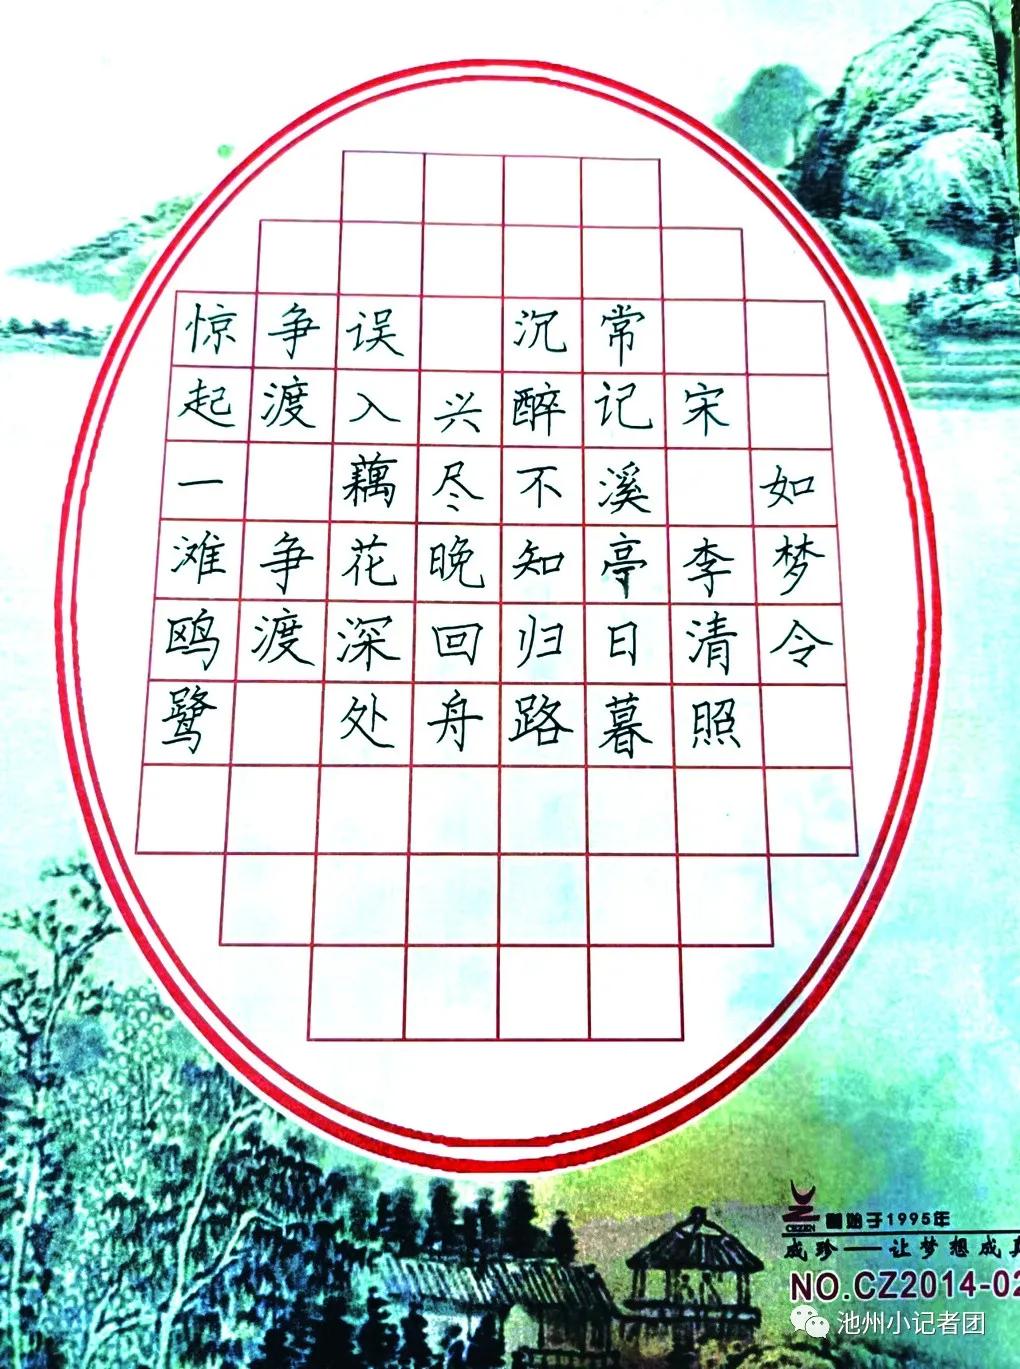 如梦令
宋 李清照
常记溪亭日暮
沉醉不知归路
兴尽晚回舟
误入藕花深处
争渡 争渡
惊起一滩鸥鹭
创始于1995年
成珍——让梦想成真
NO.CZ2014-02
池州小记者团